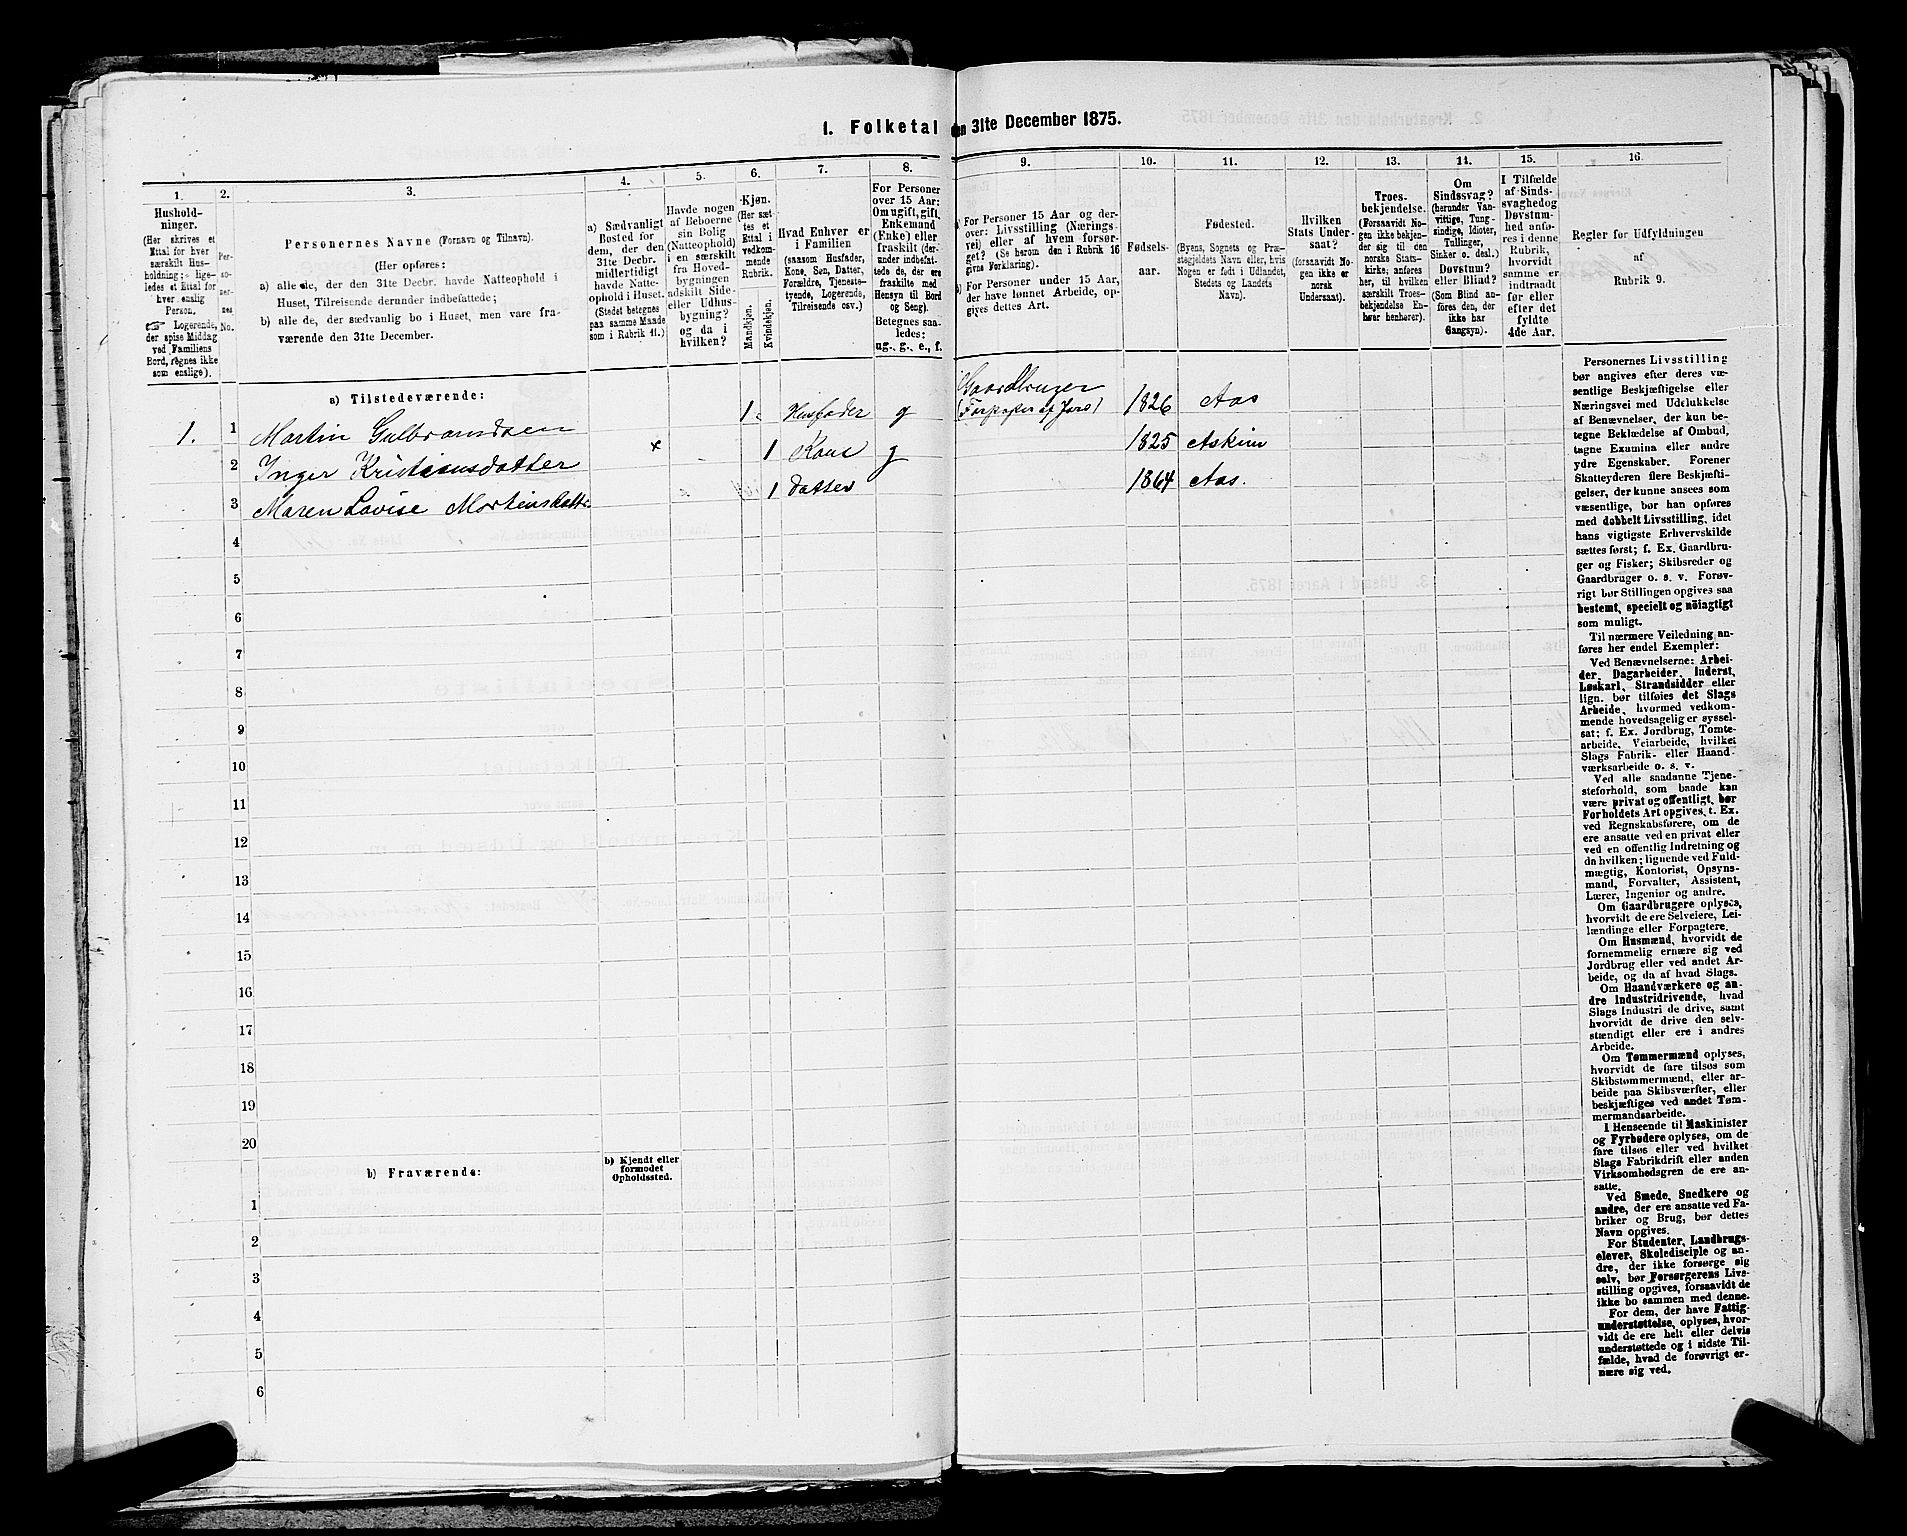 1. Folketal den 31te December 1875.
1.
Hushold-
ninger.
(Her skrives et
Ettal for hver
særskilt Hus-
holdning; lige-
ledes et Ettal for
hver enslig
Person.
☞ Logerende,
der spise Middag
ved Familiens
Bord, regnes ikke
som enslige).
2.
Per-
so-
ner-
nes
No.
3.
Personernes Navne (Fornavn og Tilnavn).
(Her opføres:
a) alle de, der den 31te Decbr. havde Natteophold i
Huset, Tilreisende derunder indbefattede;
b) alle de, der sædvanlig bo i Huset, men vare fra-
værende den 31te December.
4.
a) Sædvanligt
Bosted for
dem, der den
31te Decbr.
midlertidigt
havde Natte-
ophold i Huset.
(Stedet betegnes
paa samme Maade
som i Rubrik 11.)
5.
Havde nogen
af Beboerne
sin Bolig
(Natteophold)
i en særskilt
fra Hoved-
bygningen
adskilt Side-
eller Udhus-
bygning?
og da i
hvilken?
6.
Kjøn.
(Her sæt-
tes et
Ettal i
vedkom-
mende
Rubrik.
Mandkjøn.
Kvindekjøn.
7.
Hvad Enhver er
i Familien
(saasom Husfader,
Kone, Søn, Datter,
Forældre, Tjeneste-
tyende, Logerende,
Tilreisende osv.)
8.
For Personer
over 15 Aar:
Om ugift, gift,
Enkemand
(Enke) eller
fraskilt (der-
under indbefat-
tede de, der ere
fraskilte med
Hensyn til Bord
og Seng).
Betegnes saa-
ledes:
ug., g., e., f.
9.
a) For Personer 15 Aar og der-
over: Livsstilling (Nærings-
vei) eller af hvem forsør-
get? (Se herom den i Rubrik 16
givne Forklaring).
b) For Personer under 15 Aar,
der have lønnet Arbeide, op-
gives dettes Art.
10.
Fødsels-
aar.
11.
Fødested.
(Byens, Sognets og Præ-
stegjeldets Navn eller, hvis
Nogen er født i Udlandet,
Stedets og Landets
Navn).
12.
Hvilken
Stats Under-
saat?
(forsaavidt No-
gen ikke er
norsk
Undersaat).
13.
Troes-
bekjendelse.
(Forsaavidt No-
gen ikke bekjen-
der sig til den
norske Stats-
kirke; anføres
her, til hvilken
særskilt Troes-
bekjendelse En-
hver henhører).
14.
Om
Sindssvag?
(herunder Van-
vittige, Tung-
sindige, Idioter,
Tullinger,
Sinker o. desl.)
Døvstum?
eller Blind?
(Som Blind an-
føres den, der
ikke har
Gangsyn).
15.
I Tilfælde
af Sinds-
svaghed og
Døvstum-
hed anfø-
res i denne
Rubrik,
hvorvidt
samme er
indtraadt
før eller
efter det
fyldte
4de Aar.
16.
Regler for Udfyldningen
af
Rubrik 9.
a) Tilstedeværende:
1. 1 Martin Gulbransdsen 1 Husfader g Gaardbruger (Forpagter af Jord) 1826 Aas
2 Inger Kristiansdatter × 1 Kone g 1825 Askim
3 Maren Lovise Mortinsdattr. 1 Datter 1864 Aas.
4
5
6
7
8
9
10
11
12
13
14
15
16
17
18
19
20
b) Fraværende:
b) Kjendt eller
formodet
Opholdssted.
1
2
3
4
5
6
Personernes Livsstilling
bør angives efter deres væ-
sentlige Beskjæftigelse eller
Næringsvei med Udelukkelse
af Benævnelser, der kun be-
tegne Beklædelse af Ombud,
tagne Examina eller andre
ydre Egenskaber. Forener
Skatteyderen flere Beskjæfti-
gelser, der kunne ansees som
væsentlige, bør han opføres
med dobbelt Livsstilling, idet
hans vigtigste Erhvervskilde
sættes først; f. Ex. Gaardbru-
ger og Fisker; Skibsreder og
Gaardbruger o. s. v. Forøv-
rigt bør Stillingen opgives saa
bestemt, specielt og nöiagtigt
som muligt.
Til nærmere Veiledning an-
føres her endel Exempler:
Ved Benævnelserne: Arbei-
der, Dagarbeider, Inderst,
Løskarl, Strandsidder eller
lign. bør tilføies det Slags
Arbeide, hvormed vedkom-
mende hovedsagelig er syssel-
sat; f. Ex. Jordbrug, Tomte-
arbeide, Veiarbeide, hvilket
Slags Fabrik- eller Haand-
værksarbeide o. s. v.
Ved alle saadanne Tjene-
steforhold, som baade kan
være privat og offentligt, bør
Forholdets Art opgives, t. Ex.
ved Regnskabsførere, om de
ere ansatte ved en privat eller
ved en offentlig Indretning og
da hvilken; lignende ved Fuld-
mægtig, Kontorist, Opsyns-
mand, Forvalter, Assistent,
Lærer, Ingeniør og andre.
Om Gaardbrugere oplyses,
hvorvidt de ere Selveiere, Lei-
lændinge eller Forpagtere.
Om Husmænd, hvorvidt de
fornemmelig ernære sig ved
Jordbrug eller ved andet Ar-
beide, og da af hvad Slags.
Om Haandværkere og an-
dre Industridrivende, hvad
Slags Industri de drive, samt
hvorvidt de drive den selv-
stændigt eller ere i andres
Arbeide.
Om Tømmermænd oplyses,
hvorvidt de fare tilsøs som
Skibstømmermænd, eller ar-
beide paa Skibsværfter, eller
beskjæftiges ved andet Tøm-
mermandsarbeide.
I Henseende til Maskinister
og Fyrbødere oplyses, om de
fare tilsøs eller ved hvilket
Slags Fabrikdrift eller anden
Virksomhedsgren de ere an-
satte.
Ved Smede, Snedkere og
andre, der ere ansatte ved Fa-
briker og Brug, bør dettes
Navn opgives.
For Studenter, Landbrugs-
elever, Skoledisciple og an-
dre, der ikke forsørge sig
selv, bør Forsørgerens Livs-
stilling opgives, forsaavidt de
ikke bo sammen med denne.
For dem, der have Fattig-
understøttelse, oplyses, hvor-
vidt de ere helt eller delvis
understøttede og i sidste Til-
fælde, hvad de forøvrigt er-
nære sig ved.